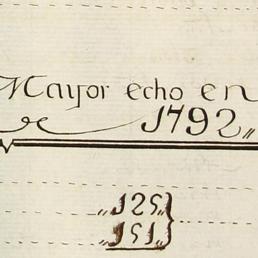 Mayor echo en
1792,,
,,125,,
,,151,,